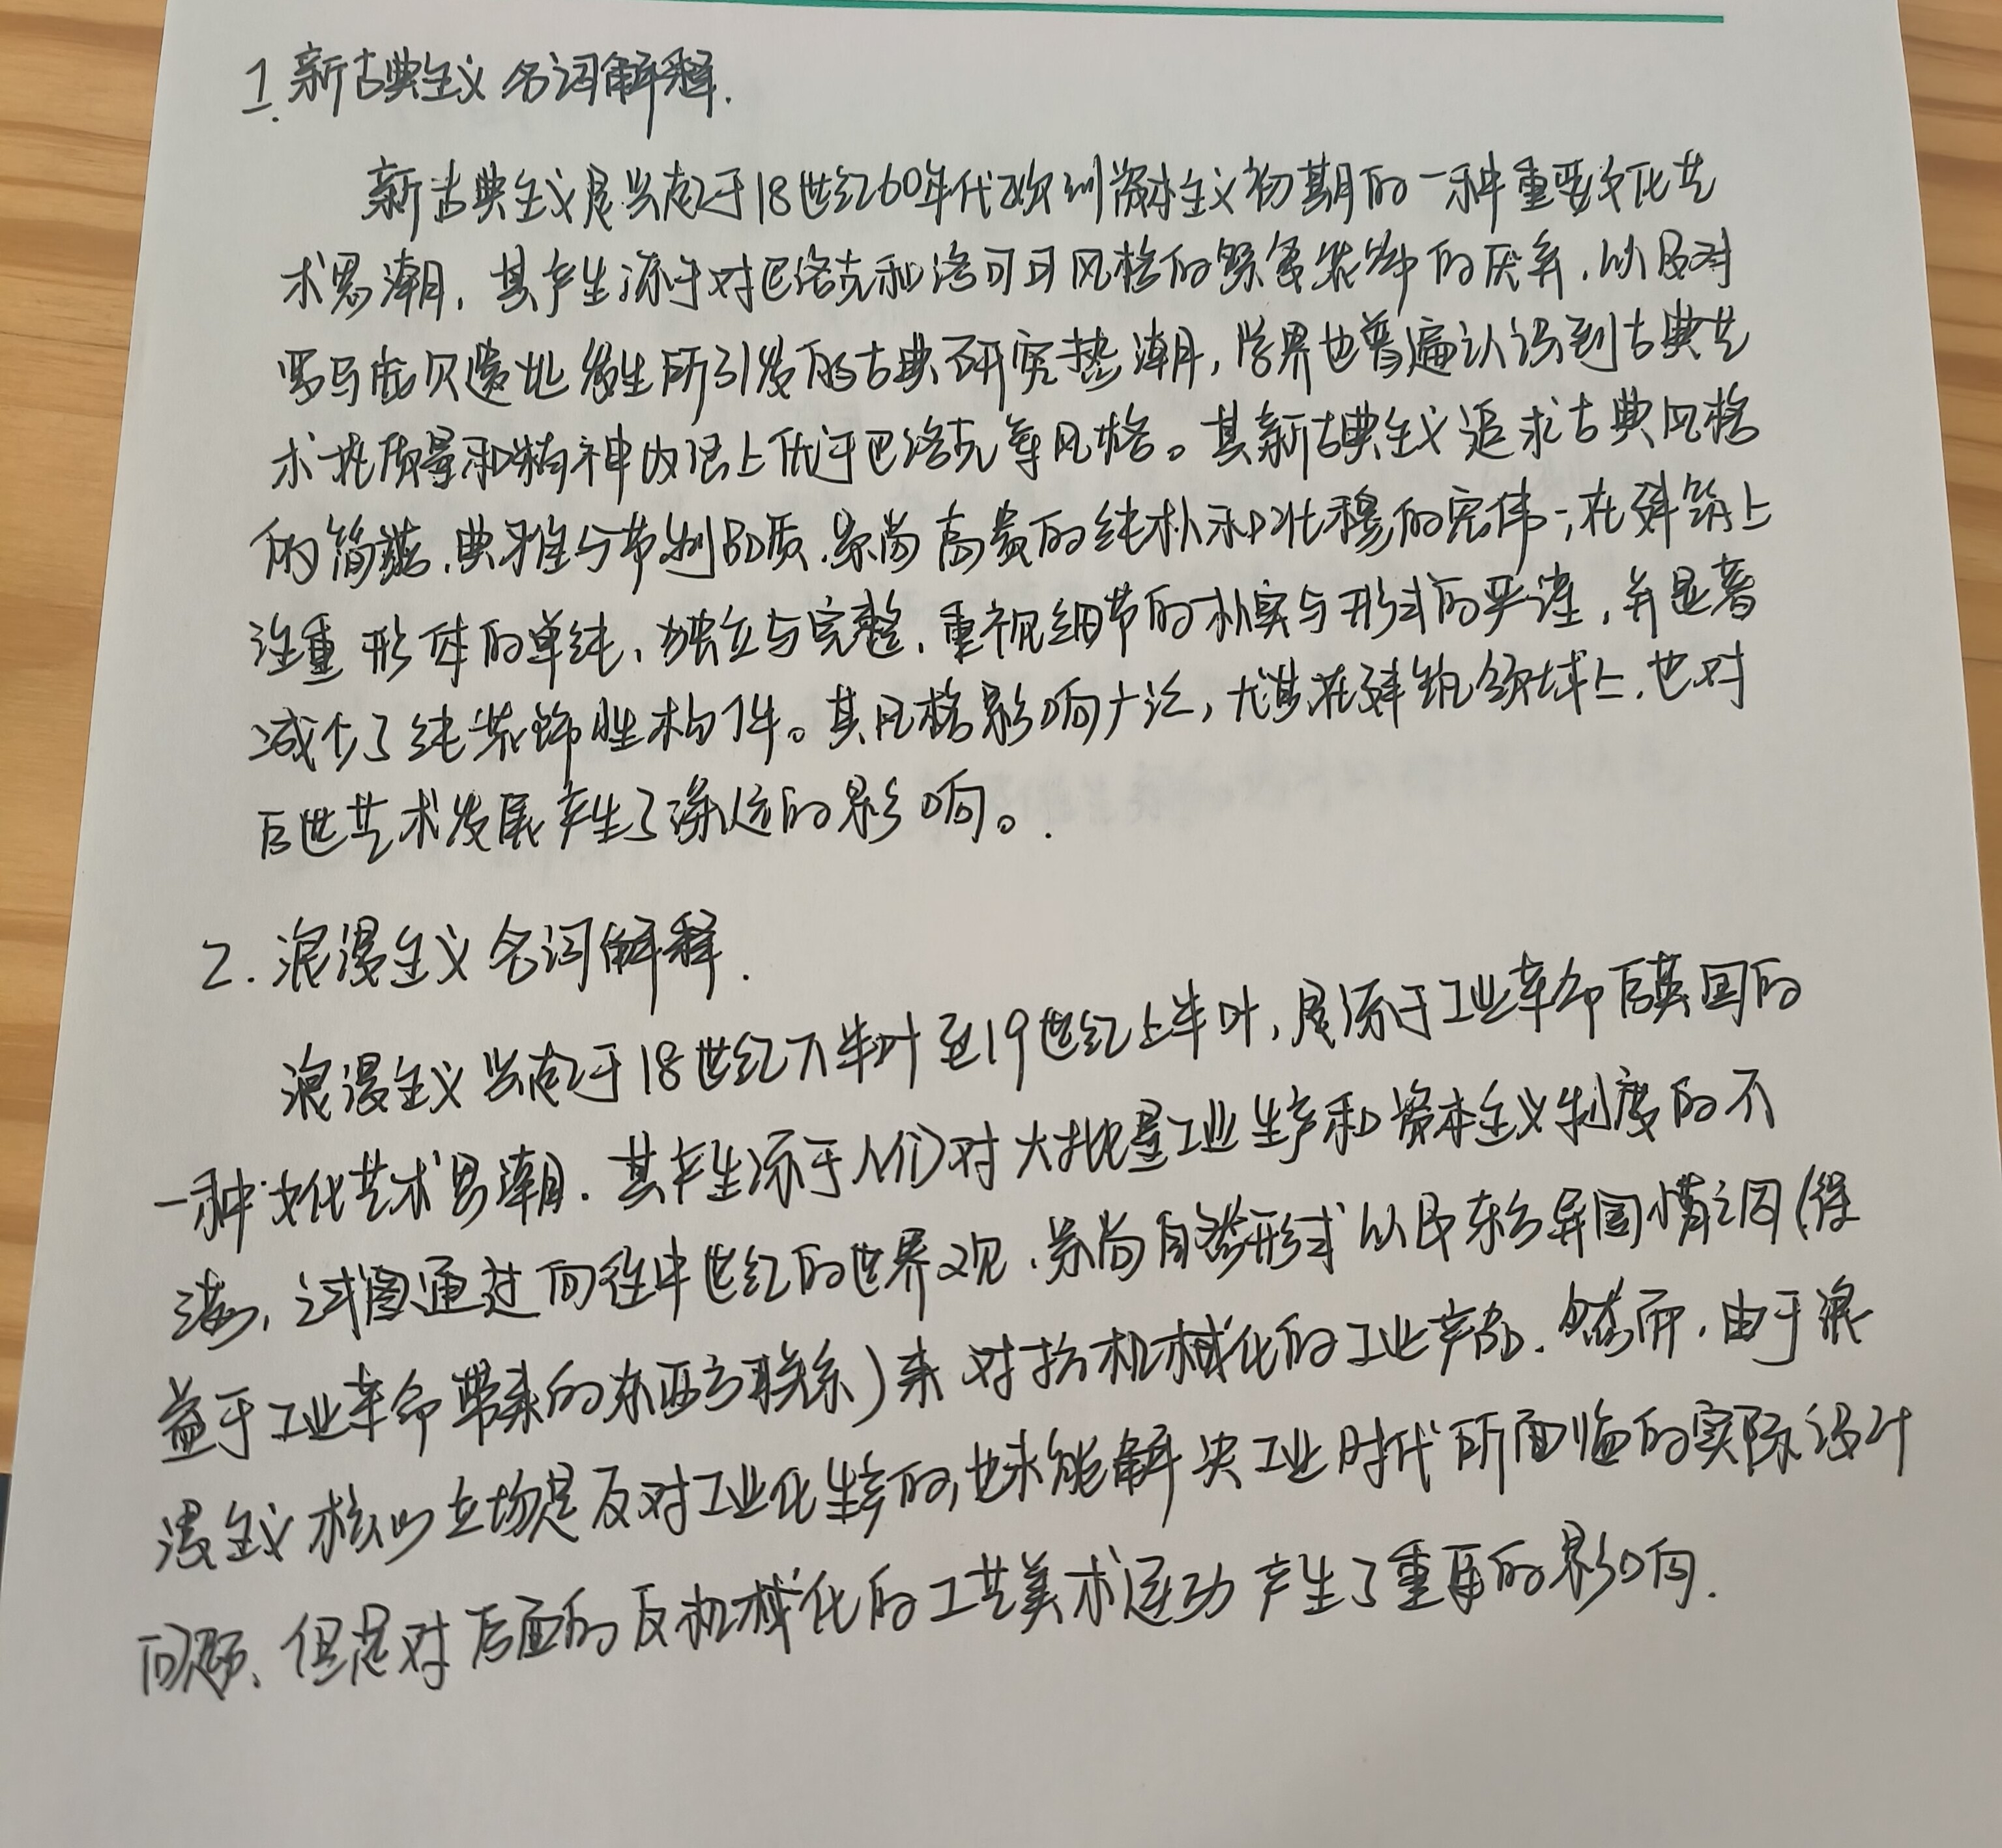 1. 新古典主义 名词解释.
新古典主义是兴起于18世纪60年代欧洲资本主义初期的一种重要文化艺
术思潮, 其产生源于对巴洛克和洛可可风格的繁复装饰的厌弃, 以及对
罗马庞贝遗址发生所引发的古典研究热潮, 学界也普遍认识到古典艺
术在质量和精神内涵上优于巴洛克等风格。其新古典主义追求古典风格
的简洁、典雅与节制品质, 崇尚高贵的纯朴和壮穆的宏伟; 在建筑上
注重形体的单纯、独立与完整, 重视细节的朴实与形式的严谨, 并显著
减少了纯装饰性构件。其风格影响广泛, 尤其在建筑领域上, 也对
后世艺术发展产生了深远的影响。
2. 浪漫主义 名词解释.
浪漫主义兴起于18世纪下半叶至19世纪上半叶, 是源于工业革命后英国的
一种文化艺术思潮. 其产生源于人们对大批量工业生产和资本主义制度的不
满, 试图通过向往中世纪的世界观、崇尚自然形式以及东方异国情调(得
益于工业革命带来的东西方联系)来对抗机械化的工业产品. 然而, 由于浪
漫主义核心立场是反对工业化生产的, 也未能解决工业时代所面临的实际设计
问题、但是对后面的反机械化的工艺美术运动产生了重要的影响.